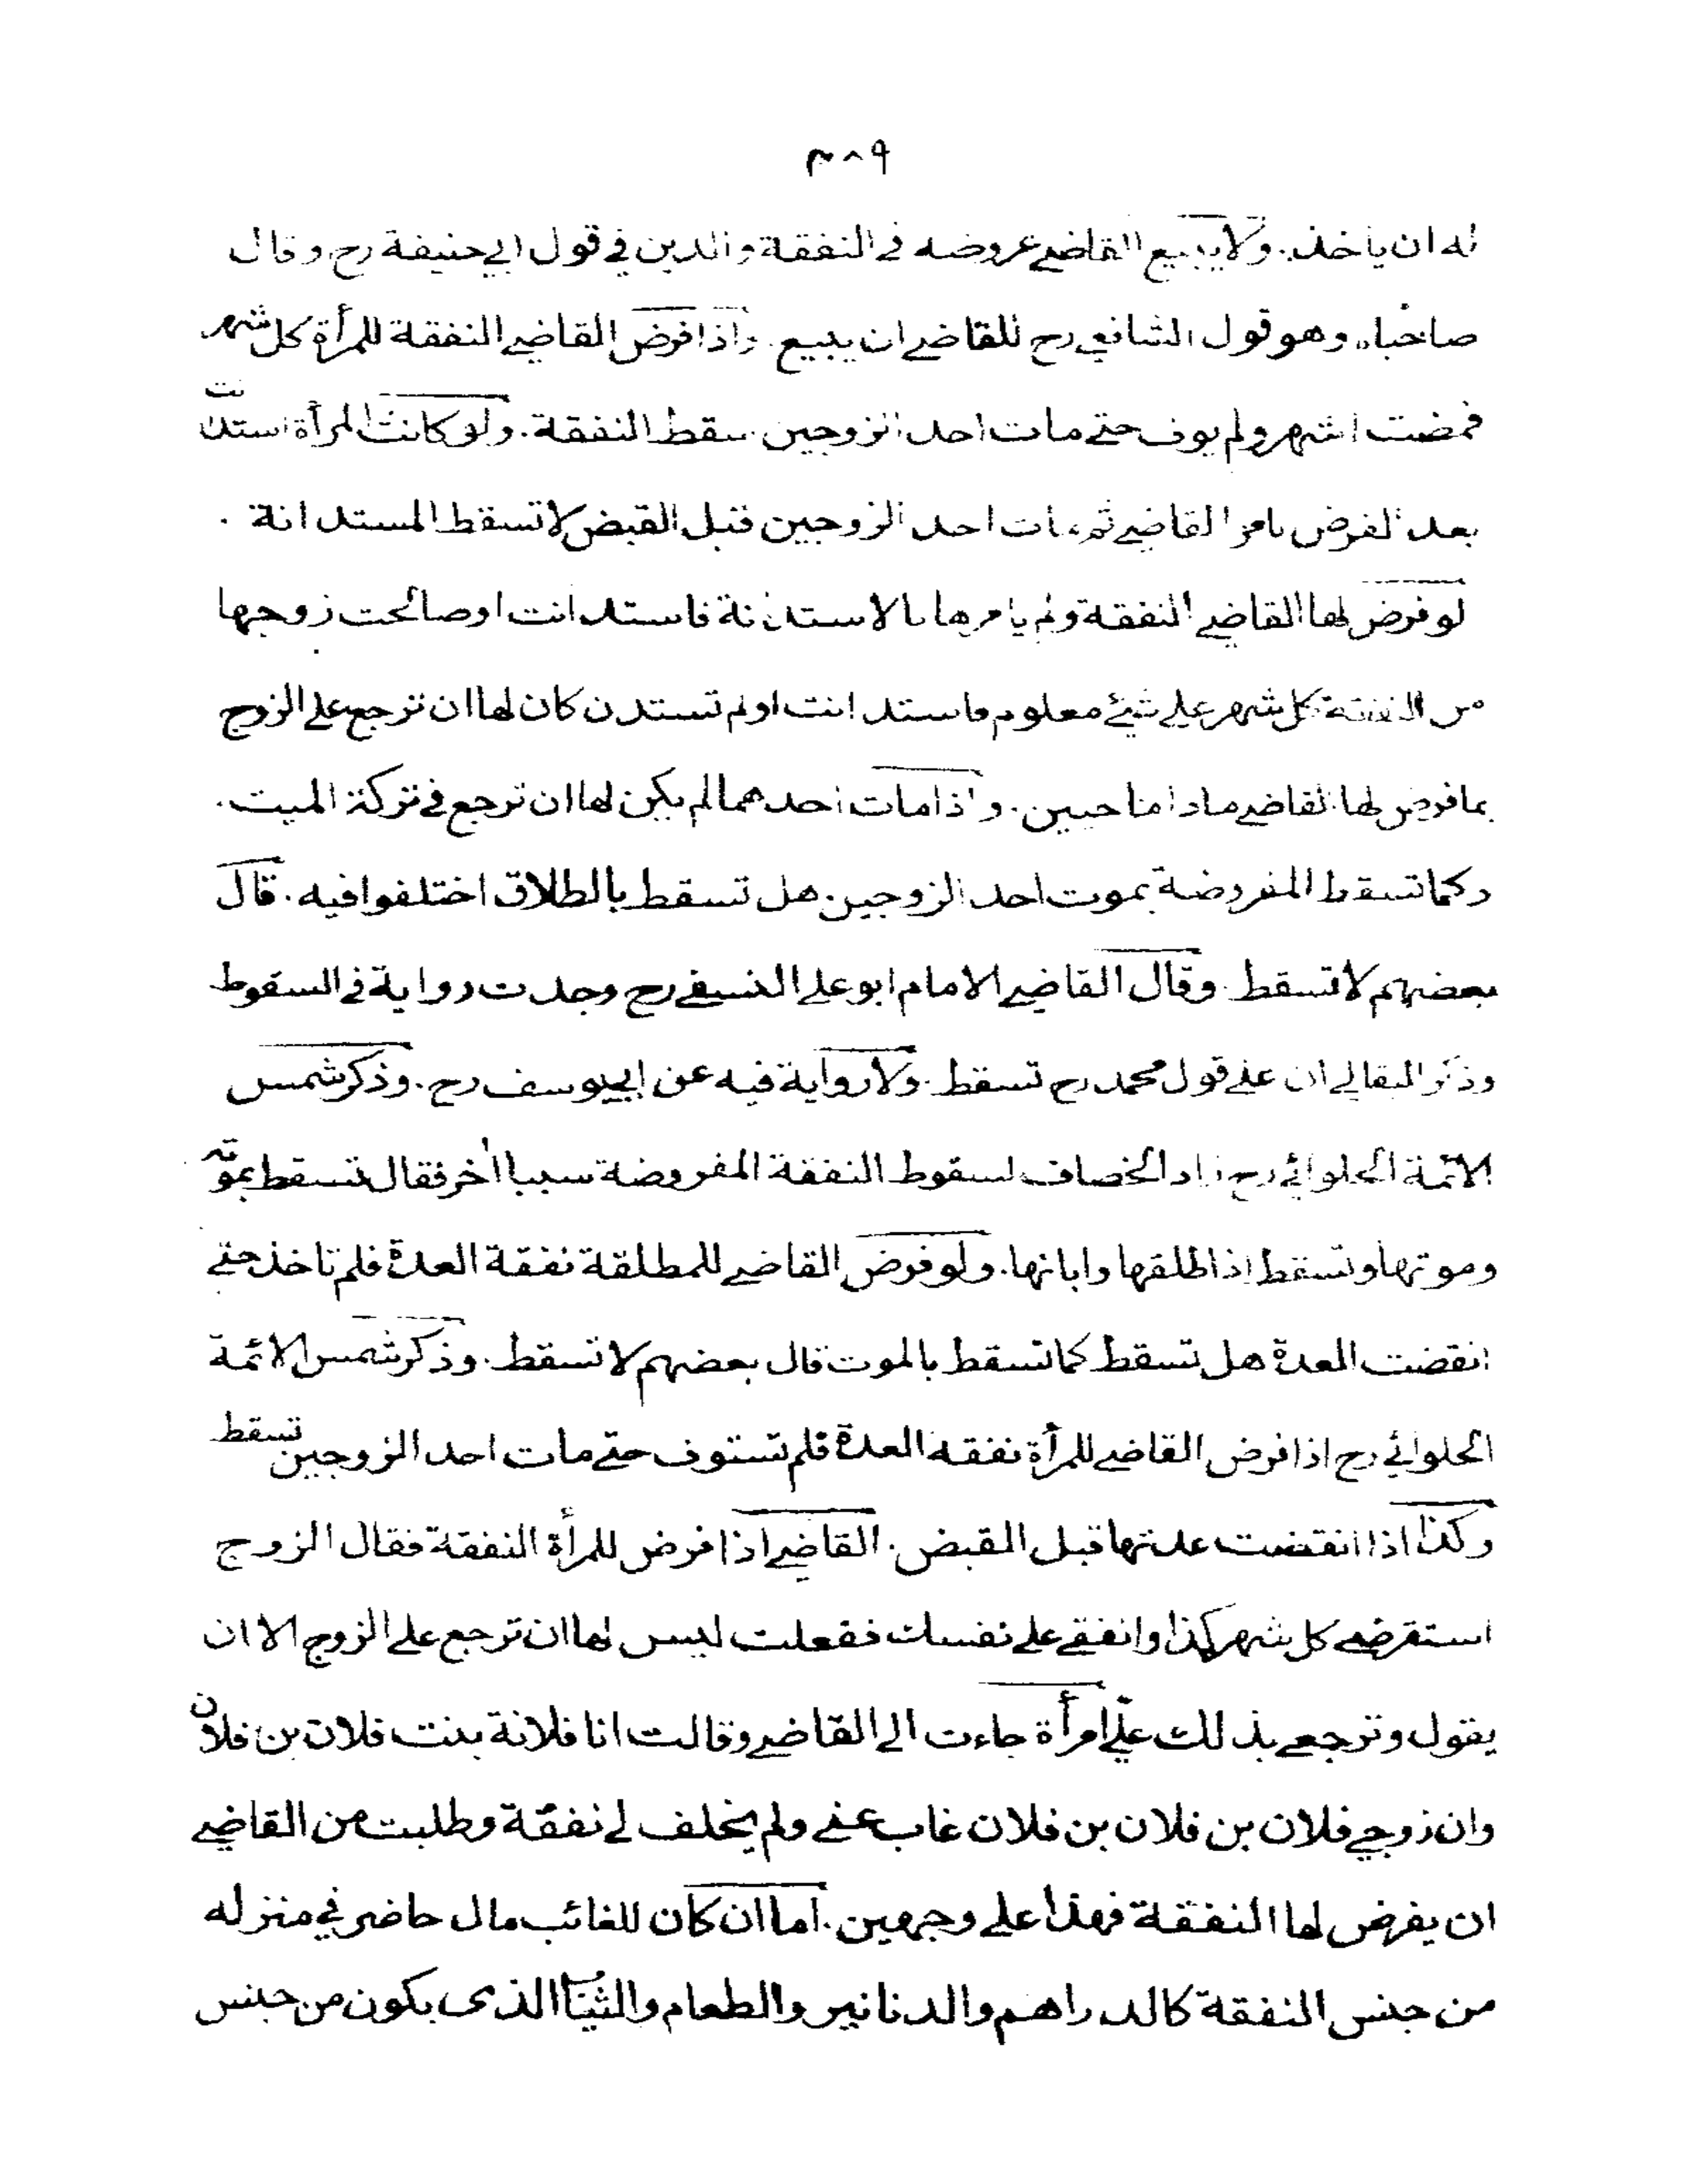 ٣٨٩
له ان ياخذ. ولا يبيع القاضے عروضه فے النفقة والدين فے قول ابي حنيفة رح وقال
صاحباه وهو قول الشافعي رح للقاضے ان يبيع. واذا فرض القاضے النفقة للمرأة كل شهر
فمضت اشهر ولم يوف حتے مات احد الزوجين سقط النفقة. ولو كانت المرأة استدانت
بعد الفرض بامر القاضے ثم مات احد الزوجين قبل القبض لا تسقط المستدانة.
لو فرض لها القاضے النفقة ولم يامرها بالاستدانة فاستدانت او صالحت زوجها
من النفقة كل شهر علے شئے معلوم فاستدانت او لم تستدن كان لها ان ترجع علے الزوج
بما فرض لها القاضے ماداما حيين. واذا مات احدهما لم يكن لها ان ترجع فے تركة الميت.
وكما تسقط المفروضة بموت احد الزوجين هل تسقط بالطلاق اختلفوا فيه. قال
بعضهم لا تسقط. وقال القاضے الامام ابو علے النسفے رح وجدت رواية فے السقوط
وذكر البقالے ان علے قول محمد رح تسقط. ولا رواية فيه عن ابي يوسف رح. وذكر شمس
الائمة الحلوائے رح زاد الخصاف لسقوط النفقة المفروضة سببا اٰخر فقال تسقط بموته
وموتها وتسقط اذا طلقها وابانها. ولو فرض القاضے للمطلقة نفقة العدة فلم تاخذ حتے
انقضت العدة هل تسقط كما تسقط بالموت قال بعضهم لا تسقط. وذكر شمس الائمة
الحلوائے رح اذا فرض القاضے للمرأة نفقة العدة فلم تستوف حتے مات احد الزوجين تسقط
وكذا اذا انقضت عدتها قبل القبض. القاضے اذا فرض للمرأة النفقة فقال الزوج
استقرضے كل شهر كذا وانفقے علے نفسك ففعلت ليس لها ان ترجع علے الزوج الا ان
يقول وترجعے بذلك علےّ امرأة جاءت الے القاضے وقالت انا فلانة بنت فلان بن فلان
وان زوجے فلان بن فلان بن فلان غاب عنے ولم يخلف لے نفقة وطلبت من القاضے
ان يفرض لها النفقة فهذا علے وجهين. اما ان كان للغائب مال حاضر فے منزله
من جنس النفقة كالدراهم والدنانير والطعام والثياب الذى يكون من جنس